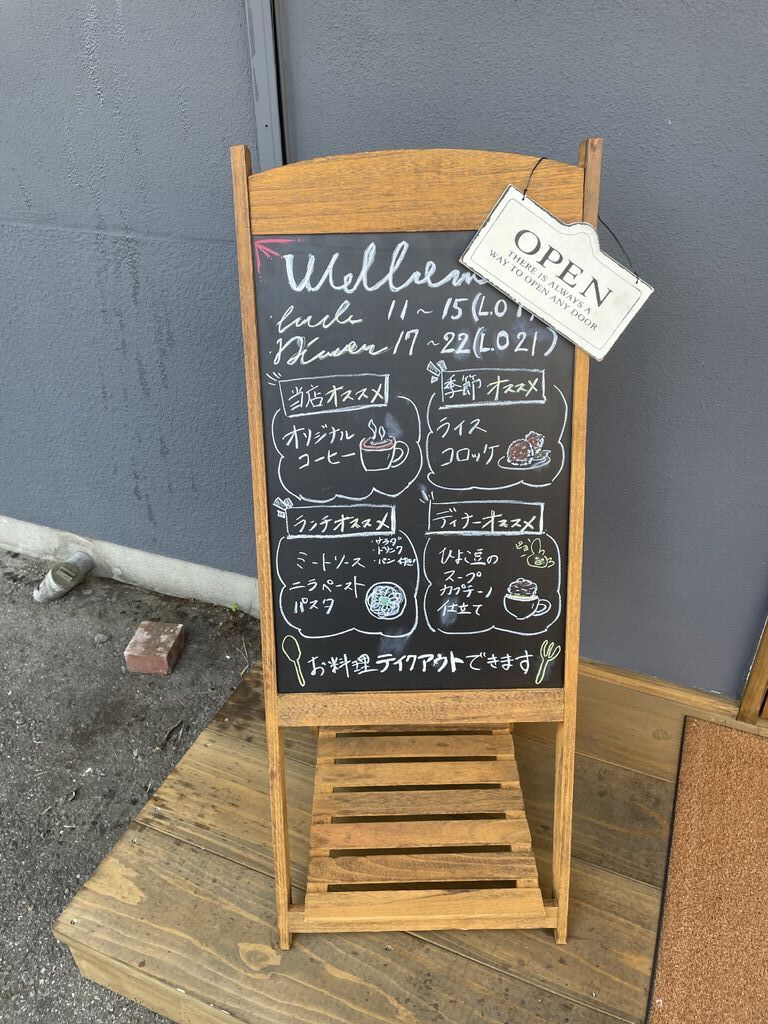 Welcome
OPEN
THERE IS ALWAYS A
WAY TO OPEN ANY DOOR
11～15(L.O
Dinner 17～22(L.O 21)
当店オススメ
オリジナル
コーヒー
季節 オススメ
ライス
コロッケ
ランチオススメ
・サラダ
・ドリンク
・パン 付き!
ミートソース
ニラペースト
パスタ
ディナーオススメ
ひよこ豆の
スープ
カプチーノ
仕立て
お料理テイクアウトできます